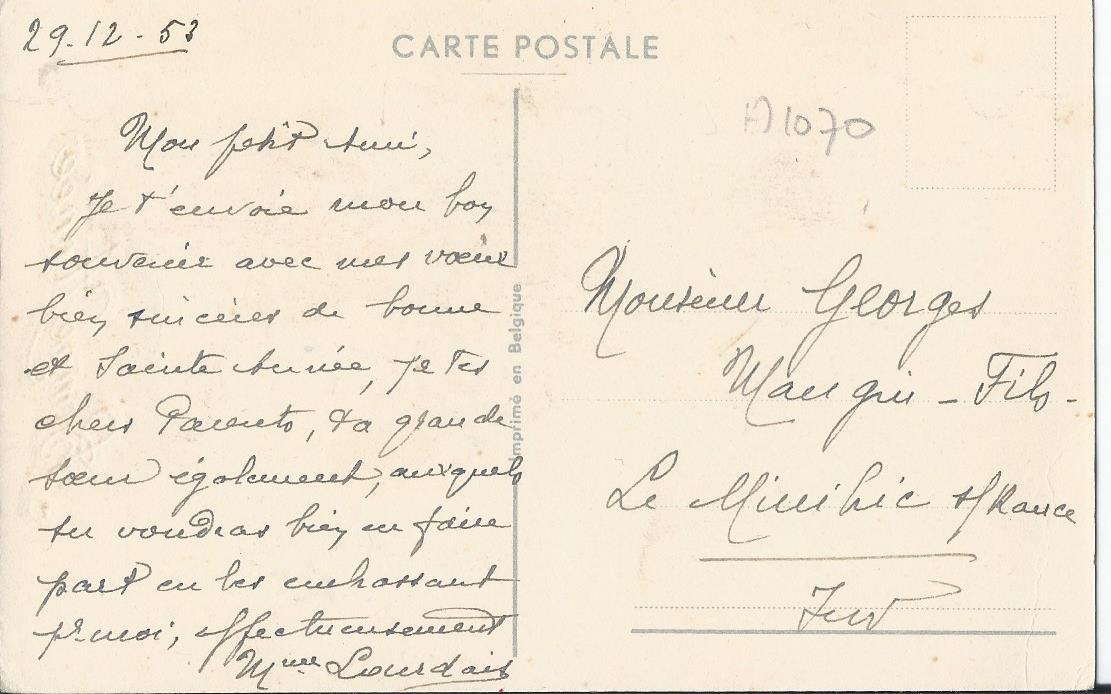 29-12-53
CARTE POSTALE
A1070
Mon petit Ami,
Je t'envoie mon bon
souvenir avec mes vœux
bien sincères de bonne
et Sainte Année, je tes
chers Parents, ta grande
sœur également, auxquels
tu voudras bien en faire
part en les embrassant
pr moi, affectueusement
Mme Lourdais
Imprimé en Belgique
Monsieur Georges
Mangin - Fils -
Le Minihic s/Rance